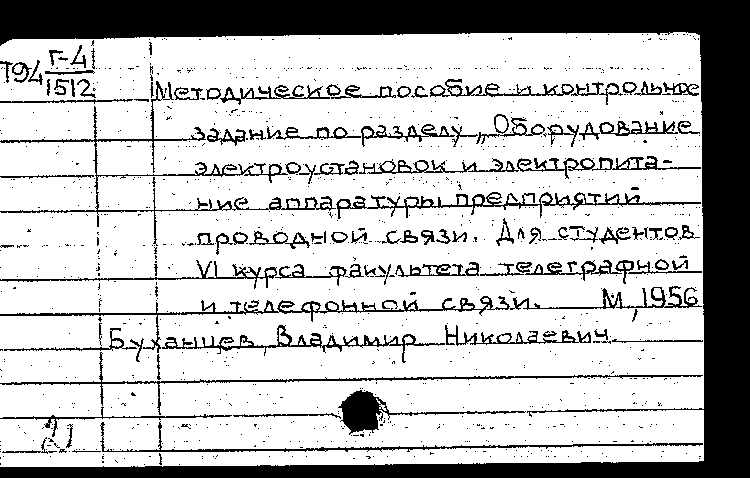 Т94 Г-4
1512
Методическое пособие и контрольное
задание по разделу „Оборудование
электроустановок и электропита-
ние аппаратуры предприятий
проводной связи. Для студентов
VI курса факультета телеграфной
и телефонной связи. М, 1956
Буханцев Владимир Николаевич.
2)